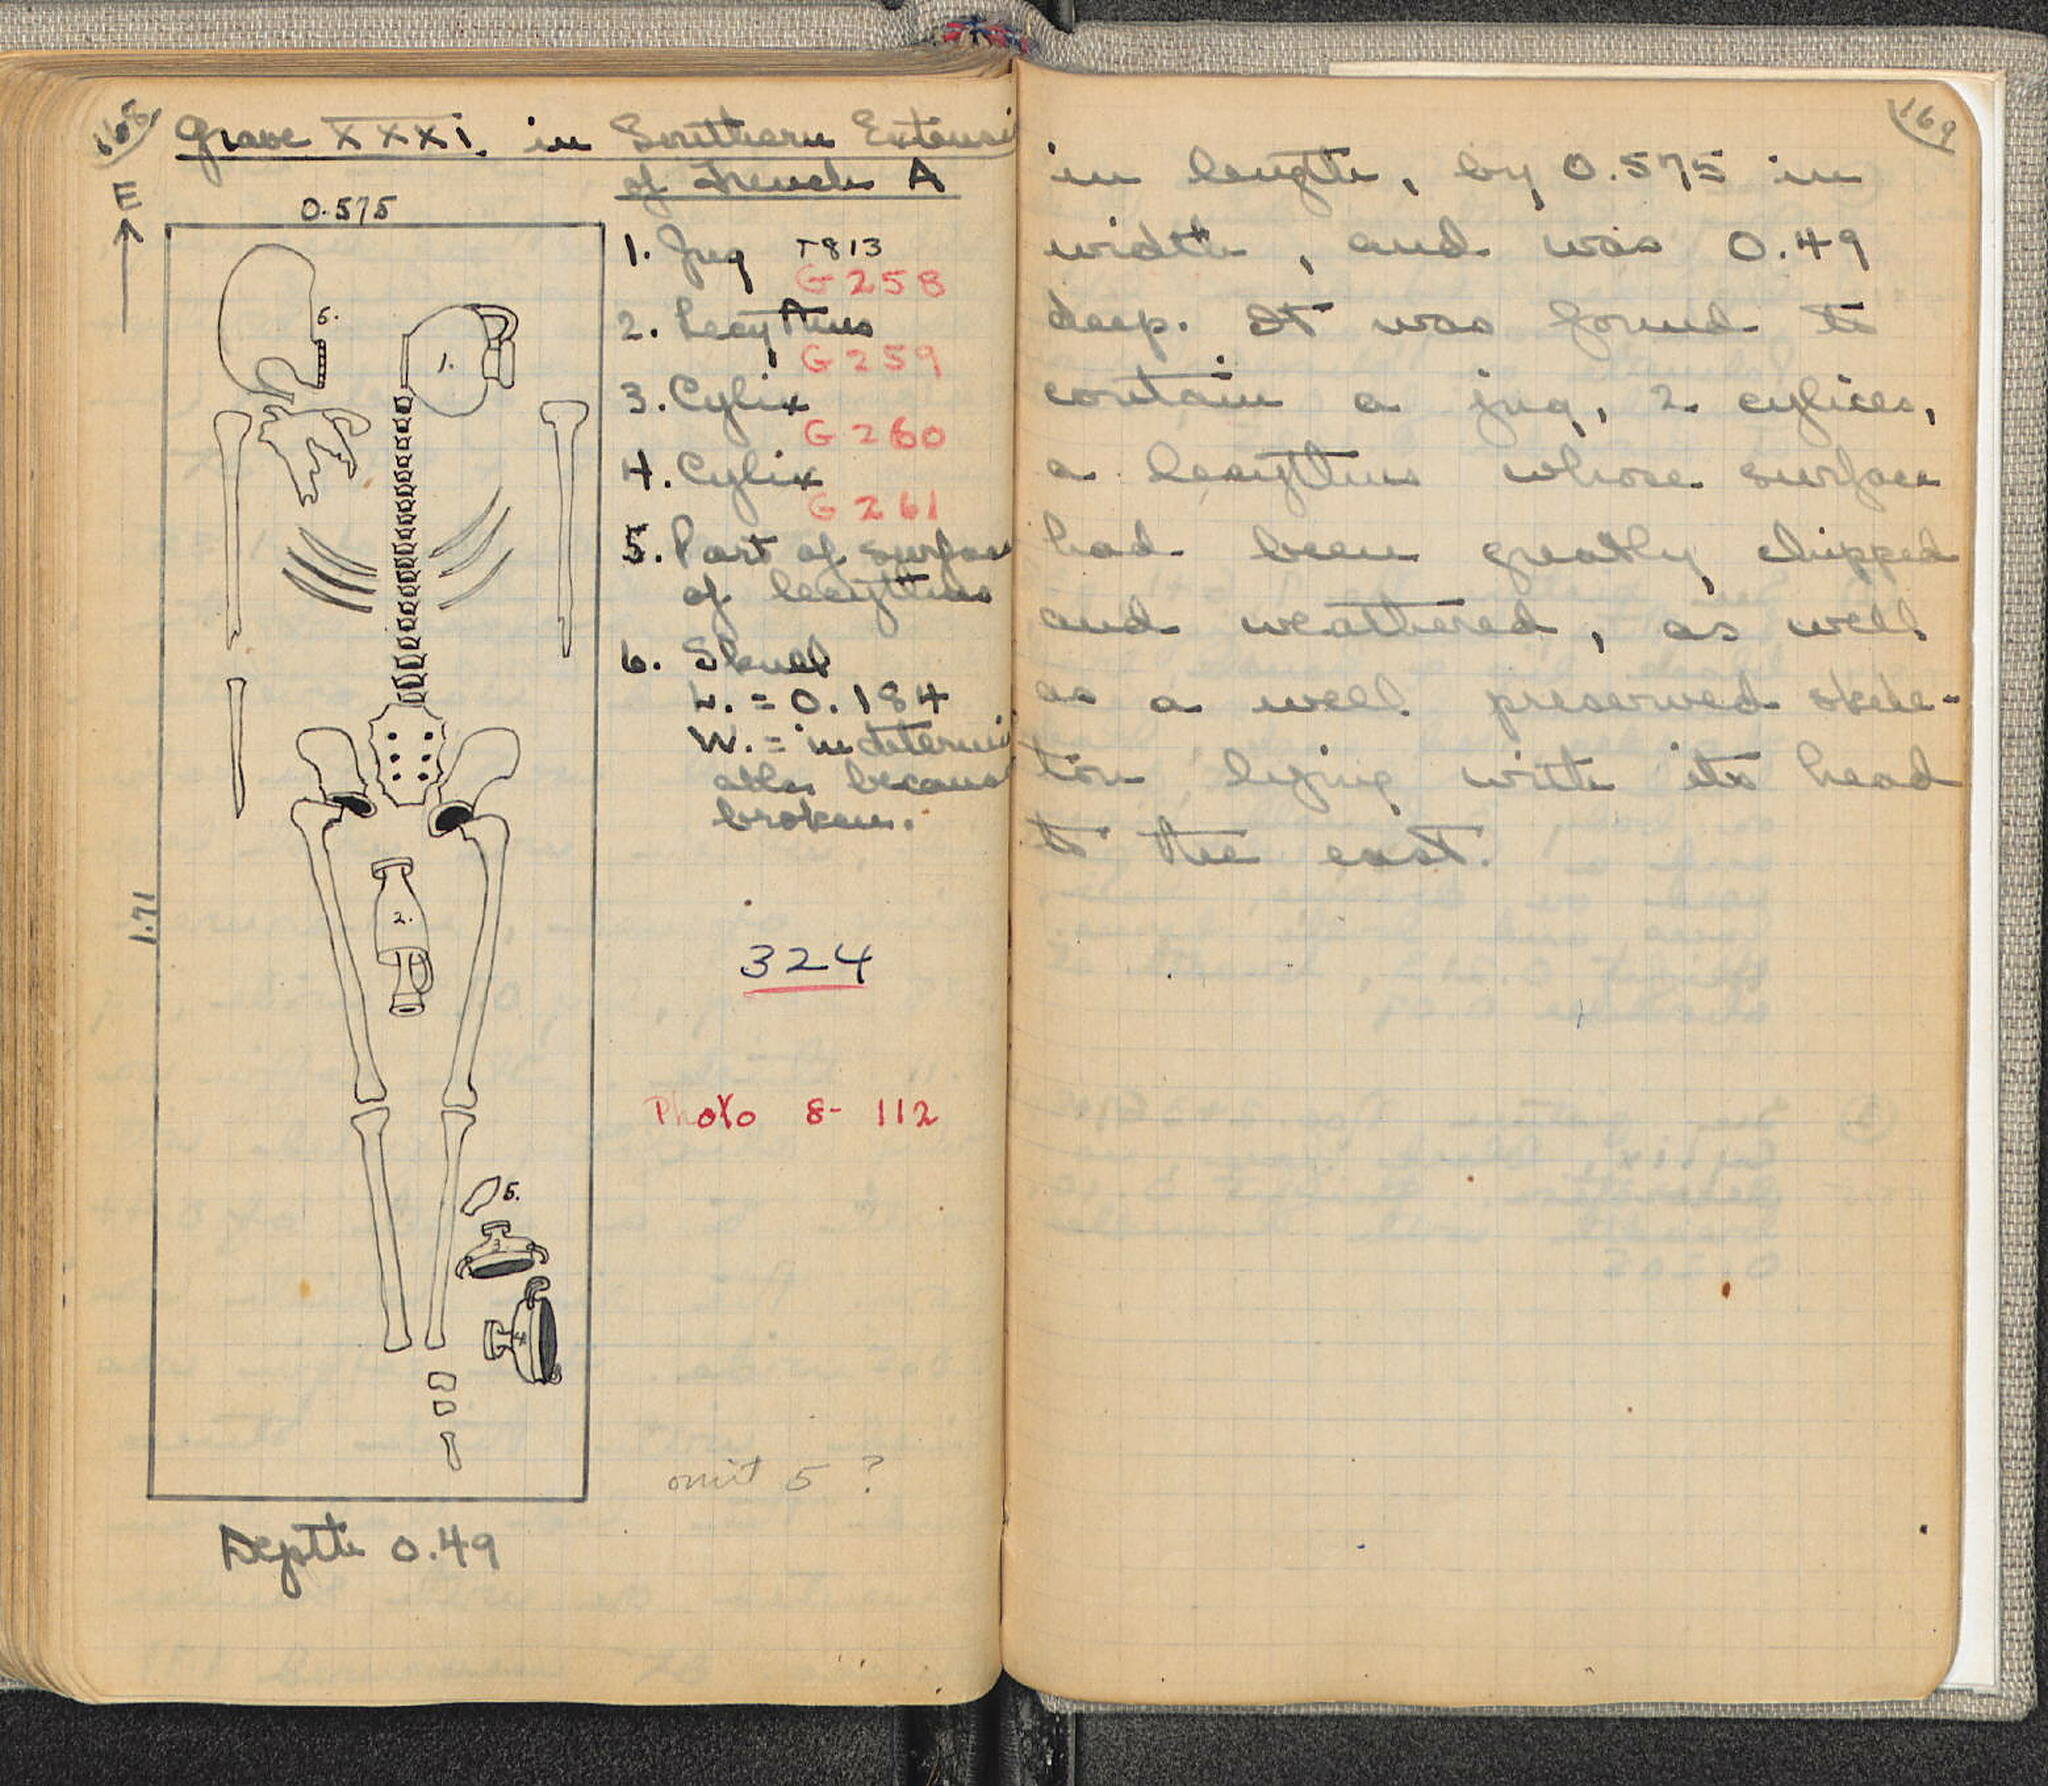 168
Grave XXXI. in Southern Extensi
of Trench A
E
0.575
1. Jug T813
G 258
2. Lecythus
G 259
3. Cylix
G 260
4. Cylix
G 261
5. Part of surface
of lecythus
6. Skull
L. = 0.184
W. = indetermin
able because
broken.
6.
1.
2.
1.71
324
Photo 8- 112
5.
3
4
omit 5 ?
Depth 0.49
169
in length, by 0.575 in
width, and was 0.49
deep. It was found to
contain a jug, 2 cylices,
a lecythus whose surface
had been greatly chipped
and weathered, as well
as a well preserved skele-
ton lying with its head
to the east.